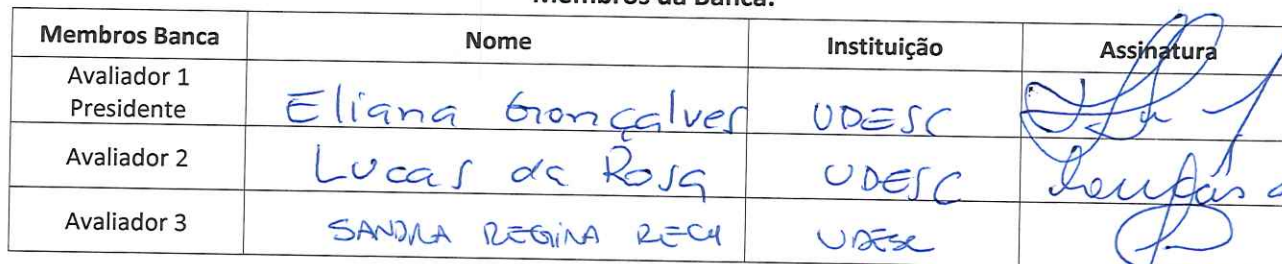 Membros da Banca:
Membros Banca Nome Instituição Assinatura
Avaliador 1
Presidente Eliana Gonçalves UDESC
Avaliador 2 Lucas da Rosa UDESC
Avaliador 3 SANDRA REGINA RECH UDESC